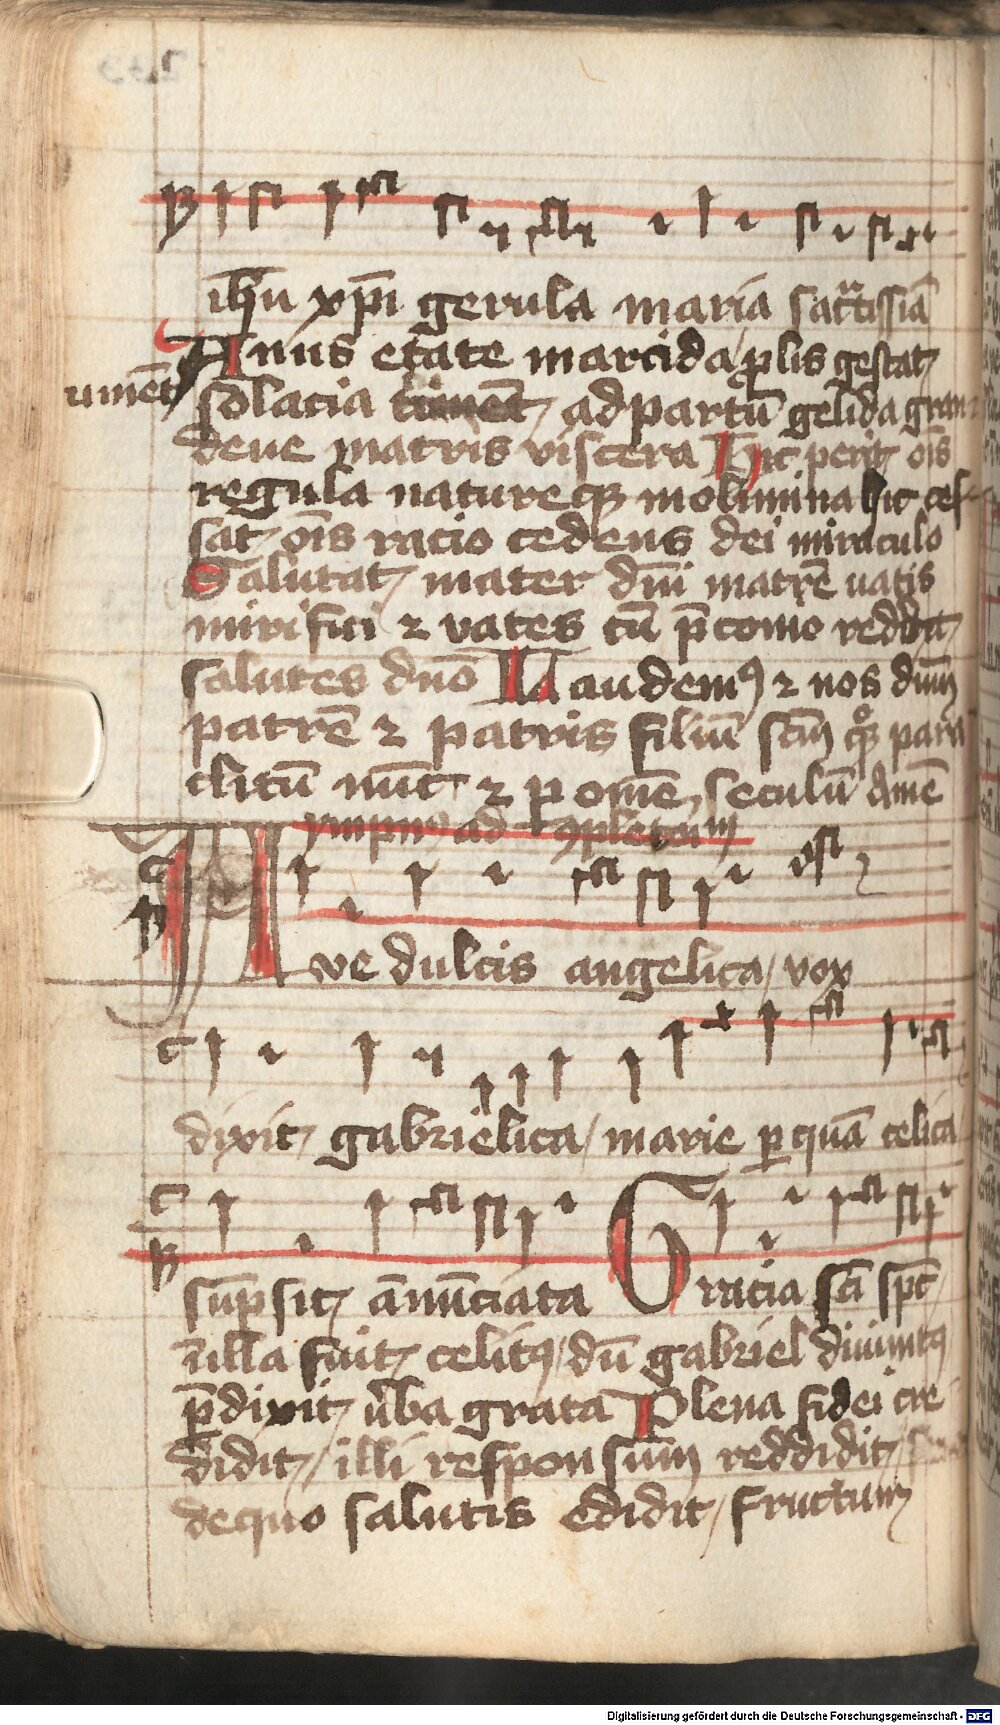 ih̄u xp̄i gerula maria sacr̄tissīa
Anus etate marcida / prolis gestat
solacia tument ad partū gelida gran
ument
deue matris viscera Hic perit oīs
regula natureqꝫ molimina hic ces
sat oīs racio cedens dei miraculo
Salutat mater dn̄i matrē uatis
mirifici ⁊ vates cū p̄como reddit
salutes dn̄o Laudemꝯ ⁊ nos dn̄m
patrē ⁊ patris filiū scm̄ qꝫ para
clitū nūc ⁊ ꝑ om̄e seculū Amē
ympnꝯ ad ꝯpletorium
Ave dulcis angelica / vox
dixit gabrielica / marie ꝑ quā celica
sūpsit an̄ūciata Gracia scī spc̄
illa fuit celitꝯ / dū gabriel diuinitꝯ
p̄dixit v̄ba grata Plena fidei cre
didit / illi responsum reddidit /
dequo salutis edidit / fructum
Digitalisierung gefördert durch die Deutsche Forschungsgemeinschaft - DFG